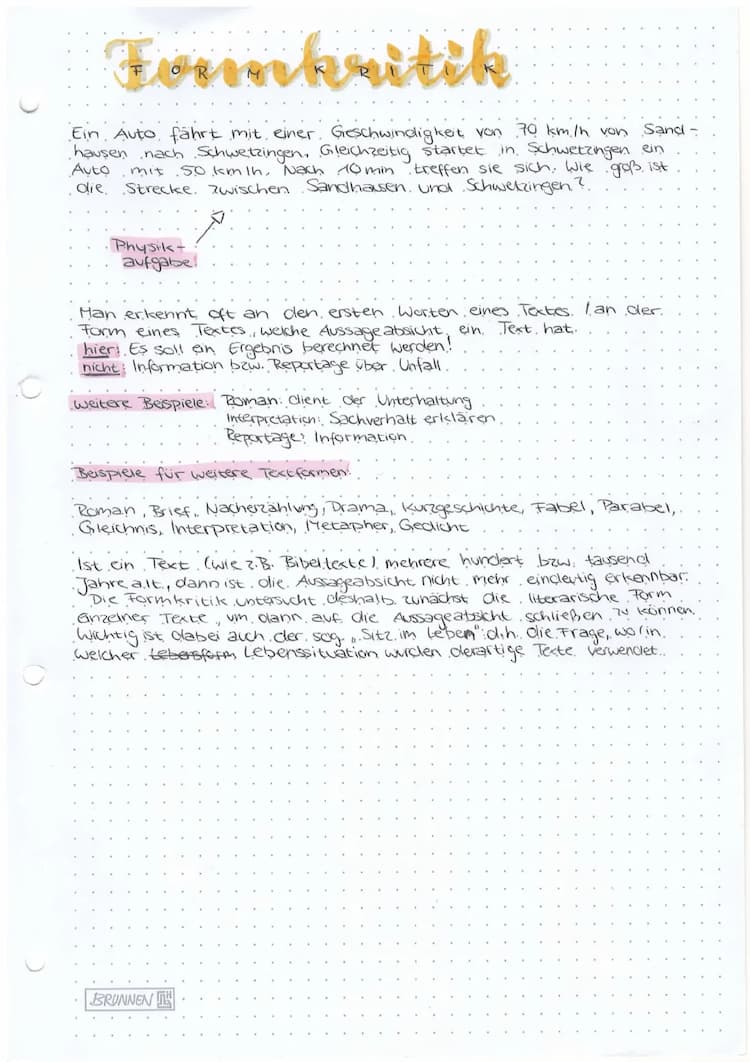 Formkritik
FORMKRITIK
Ein Auto fährt mit einer Geschwindigkeit von 70 km/h von Sand-
hausen nach Schwetzingen. Gleichzeitig startet in Schwetzingen ein
Auto mit 50 km/h. Nach 10 min treffen sie sich. Wie groß ist
die Strecke zwischen Sandhausen und Schwetzingen?
Physik-
aufgabe!
Man erkennt oft an den ersten Worten eines Textes / an der
Form eines Textes, welche Aussageabsicht ein Text hat.
hier: Es soll ein Ergebnis berechnet werden!
nicht: Information bzw. Reportage über Unfall
weitere Beispiele: Roman: dient der Unterhaltung
Interpretation: Sachverhalt erklären
Reportage: Information
Beispiele für weitere Textformen:
Roman, Brief, Nacherzählung, Drama, Kurzgeschichte, Fabel, Parabel,
Gleichnis, Interpretation, Metapher, Gedicht
Ist ein Text (wie z.B. Bibeltexte) mehrere hundert bzw. tausend
Jahre alt, dann ist die Aussageabsicht nicht mehr eindeutig erkennbar.
Die Formkritik untersucht deshalb zunächst die literarische Form
einzelner Texte, um dann auf die Aussageabsicht schließen zu können.
Wichtig ist dabei auch der sog. „Sitz im Leben": d.h. die Frage, wo/in
welcher Lebensform Lebenssituation wurden derartige Texte verwendet.
BRUNNEN